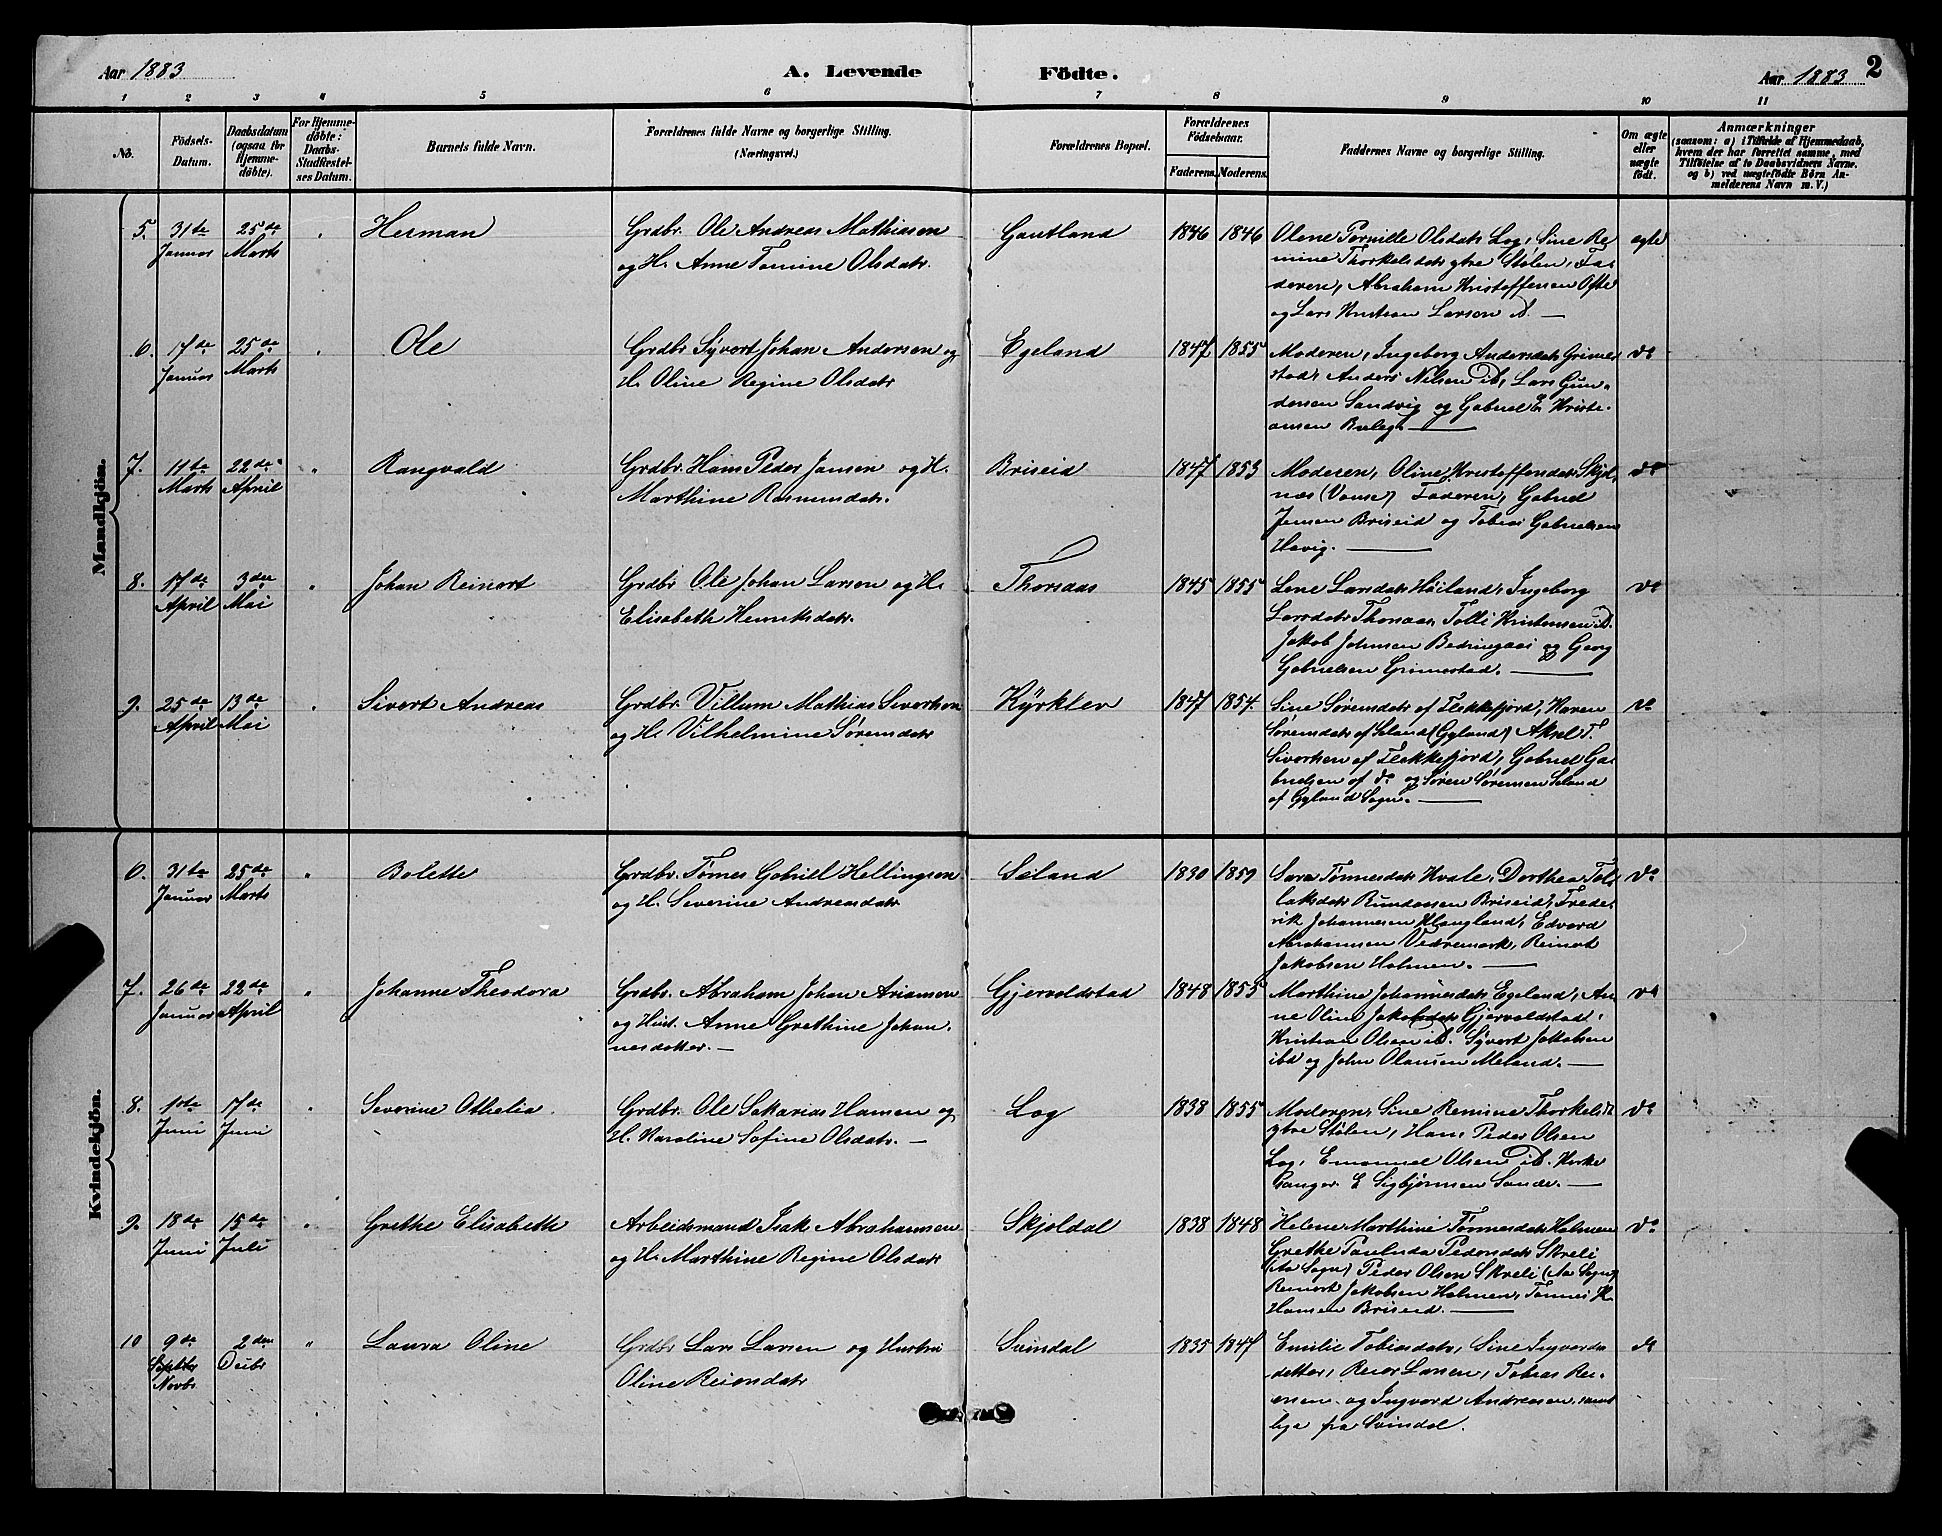 Aar 1883
A. Levende Födte.
Aar 1883
2
1 2 3 4 5 6 7 8 9 10 11
No.
Födsels-Datum.
Daabsdatum (ogsaa for Hjemme-döbte).
For Hjemme-döbte: Daabs-Stadfæstel-ses Datum.
Barnets fulde Navn.
Forældrenes fulde Navne og borgerlige Stilling. (Næringsvei.)
Forældrenes Bopæl.
Forældrenes Födselsaar.
Faderens. Moderens.
Faddernes Navne og borgerlige Stilling.
Om ægte eller uægte födt.
Anmærkninger
(saasom: a) i Tilfælde af Hjemmedaab, hvem der har forrettet samme, med Tilföielse af to Daabsvidners Navne, og b) ved uægtefödte Börn An-melderens Navn m. V.)
Mandkjön.
5. 31te Januar 25de Marts " Herman
Grdbr. Ole Andreas Mathiasen
og H. Anne Tomine Olsdatr.
Gautland 1846 1846
Olene Pernille Olsdatr Log, Sine Re-
mine Thorkelsdatr ytre Stølen, Fa-
deren, Abraham Kristoffersen Ofte
og Lars Kristian Larsen ib. —
egte
6. 17de Januar 25de Marts " Ole
Grdbr Syvert Johan Andersen og
H. Oline Regine Olsdatr
Egeland 1847 1855
Moderen, Ingeborg Andersdatr Grime-
stad, Anders Nilsen ib, Lars Gun-
dersen Sandvig og Gabriel E. Kristi-
ansen —
do
7. 11te Marts 22de April " Rangvald
Grdbr. Hans Peder Jansen og H.
Marthine Rasmusdatr.
Briseid 1847 1853
Moderen, Oline Kristoffersdatr Skjol-
næs (Vanse) Faderen, Gabriel
Jensen Briseid og Tobias Gabrielsen
Havig. —
do
8. 17de April 3die Mai " Johan Reinert
Grdbr Ole Johan Larsen og H.
Elisabeth Henriksdatr.
Thorsaas 1845 1855
Lene Larsdatr Høiland, Ingeborg
Larsdatr Thorsaas, Tolli Kristensen ib.
Jakob Johnsen og Georg
Gabrielsen Grimestad. —
do
9. 25de April 13de Mai " Sivert Andreas
Grdbr Villum Mathias Sivertsen
og H. Vilhelmine Sørensdatr
Kyrklev 1847 1854.
Sine Sørensdatr af Flekkefjord, Karen
Sørensdatr af Seland (Gyland) Aksel T.
Sivertsen af Flekkefjord, Gabriel Ga-
brielsen af do og Søren Sørensen Seland
af Gyland Sogn. —
do
Kvindekjön.
6. 31te Januar 25de Marts " Bolette
Grdbr. Tønnes Gabriel Hellingsen
og H. Severine Andreasdatr
Seland 1830 1859
Sara Tønnesdatr Hvale, Dorthea Tol-
laksdatr Briseid, Frede-
rik Johannesen Haugland, Edvard
Abrahamsen Vedremark, Reinert
Jakobsen Holmen. —
do
7. 26de Januar 22de April " Johanne Theodora
Grdbr. Abraham Johan Ariansen
og Hust. Anne Grethine Johan-
nesdatter. —
Gjervoldstad 1848 1855
Marthine Johannesdatr Egeland, An-
ne Oline Jakobsdatr Gjervoldstad,
Kristian Olsen ib. Syvert Jakobsen
ibd og John Olausen Meland. —
do
8. 1ste Juni 17de Juni " Severine Othelia
Grdbr. Ole Sakarias Hansen og
H. Karoline Sofine Olsdatr. —
Log 1838 1855
Moderen, Sine Remine Thorkelsd
ytre Stølen, Hans Peder Olsen
Log, Emanuel Olsen ib. Kirke-
sanger E Sigbjørnsen Sande. —
do
9. 18de Juni 15de Juli " Grethe Elisabeth
Arbeidsmand Isak Abrahamsen
og H. Marthine Regine Olsdatr
Skjoldal 1838 1848
Helene Marthine Tønnesdatr Holmen
Grethe Paulinda Pedersdatr Skreli
(Aa Sogn) Peder Olsen Skreli (Aa Sogn)
Reinert Jakobsen Holmen, Tønnes K.
Hansen Briseid. —
do
10 9de Septbr Novbr. 2den Decbr " Laura Oline
Grdbr Lars Larsen og Hustru
Oline Reiersdatr
Svindal 1835 1847
Emilie Tobiasdatr, Sine Ingvards-
detter, Reier Larsen, Tobias Rei-
ersen og Ingvard Andreasen, samt-
lige fra Svindal.
do